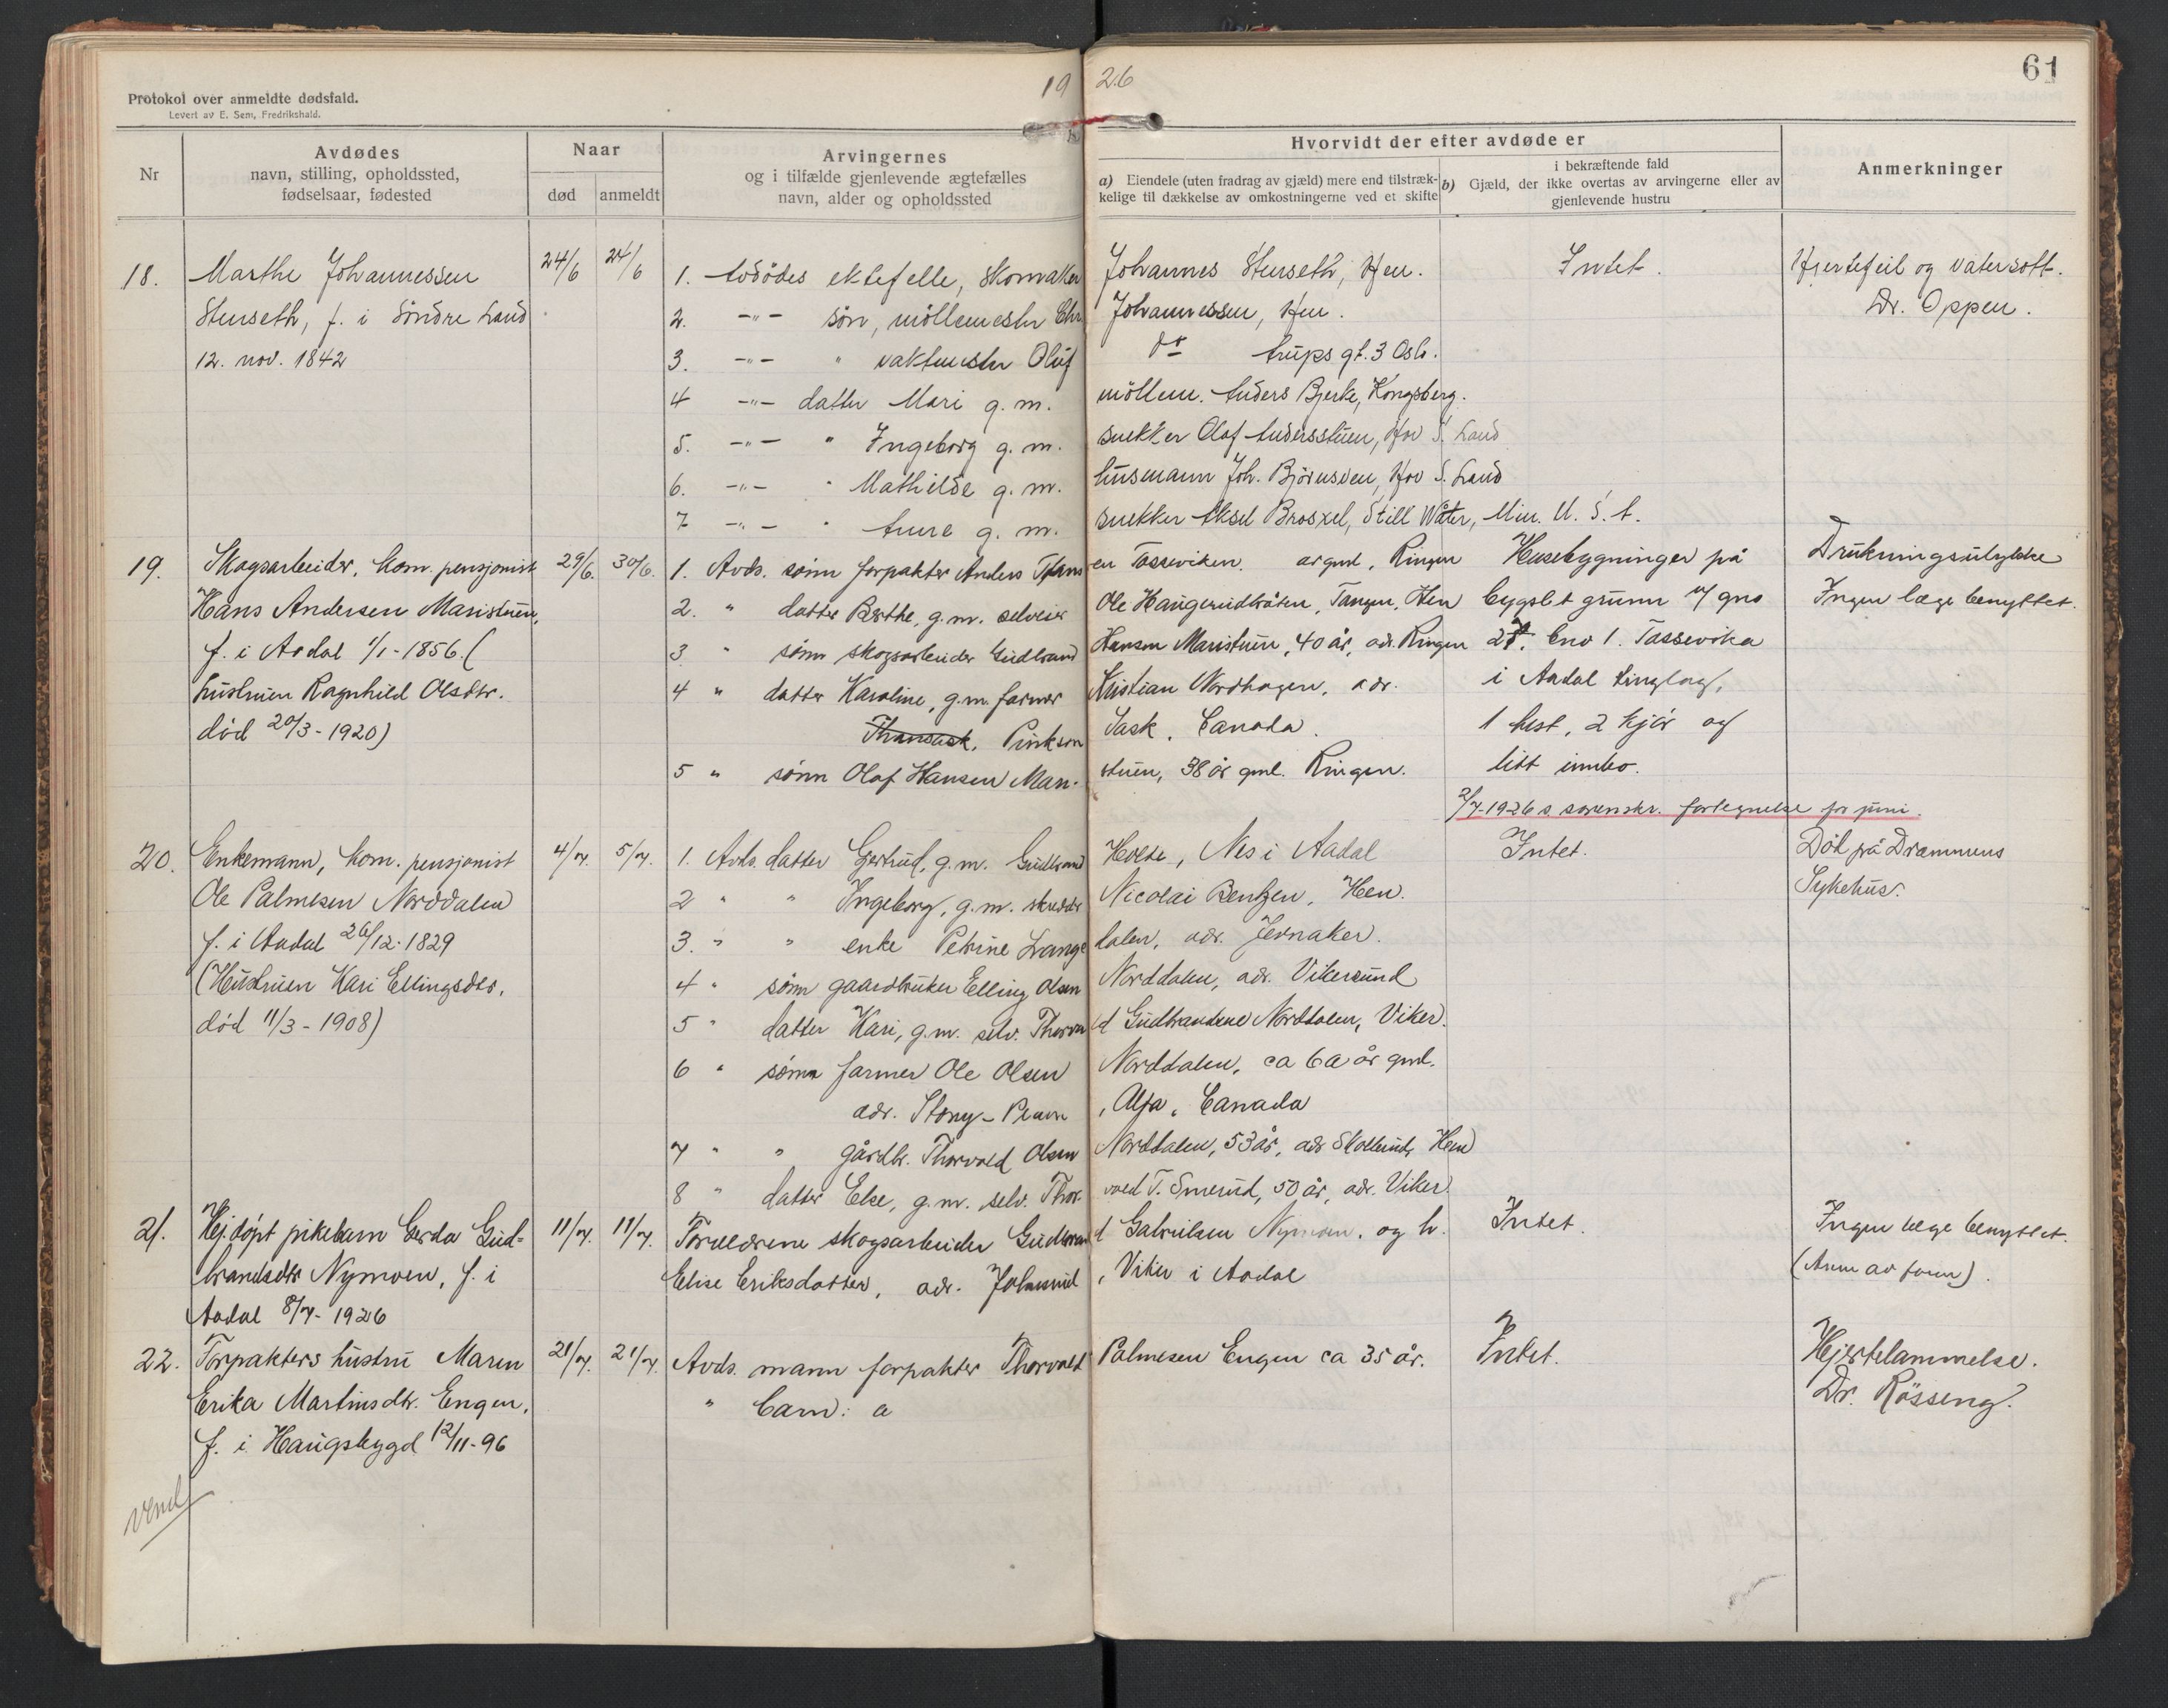 Protokol over anmeldte dødsfald.
Levert av E. Sem, Fredrikshald.
19 26
61
Nr
Avdødes
navn, stilling, opholdssted,
fødselsaar, fødested
Naar
død
anmeldt
Arvingernes
og i tilfælde gjenlevende ægtefælles
navn, alder og opholdssted
Hvorvidt der efter avdøde er
a) Eiendele (uten fradrag av gjæld) mere end tilstræk-
kelige til dækkelse av omkostningerne ved et skifte
i bekræftende fald
b) Gjæld, der ikke overtas av arvingerne eller av
gjenlevende hustru
Anmerkninger
18.
Marthe Johannessen
Stenseth, f. i Söndre Land
12. nov. 1842
24/6
24/6
1. Avdödes ektefelle, Skomaker Johannes Stenseth, Hen.
2. -"- sön, möllemester Chr. Johannessen, Hen.
3. -"- " vaktmester Oluf do Arups gt. 3 Oslo.
4 -"- datter Mari g. m. möllem. Anders Bjerke, Kongsberg.
5. -"- " Ingeborg g. m. snekker Olaf Andersstuen, Hov S. Land
6. -"- " Mathilde g. m. husmann Joh. Björnsven, Hov S. Land
7 -"- " Anne g. m. snekker Aksel Brosxel, Still Water, Min. U. S. A.
Intet.
Hjertefeil og vatersott.
Dr. Oppen.
19.
Skogsarbeider, kom. pensjonist
Hans Andersen Maristuen,
f. i Aadal 1/1-1856. (
hustruen Ragnhild Olsdtr.
död 20/3-1920)
29/6.
30/6.
1. Avds. sönn forpakter Anders Hansen Tosseviken. Ringen
2. " datter Berthe, g.m. selveier Ole Haugerudbråten, Tangen, Hen
3. " sönn skogsarbeider Gudbrand Hansen Maristuen, 40 år, adr. Ringen
4 " datter Karoline, g.m. farmer Kristian Nordhagen, adr.
Sask, Canada.
5 " sönn Olaf Hansen Mari- stuen, 38 år gml. Ringen.
Husebygninger på
bygslet grunn av gno
27. bno 1. Tossevika
i Aadal tinglag,
1 hest, 2 kjör og
litt innbo.
Drukningsulykke
Ingen læge benyttet.
2/7-1926 s. sorenskr. fortegnelse for juni.
20.
Enkemann, kom. pensjonist
Ole Palmesen Norddalen
f. i Aadal 26/12-1829
(Hustruen Kari Ellingsdtr.
död 11/3-1908)
4/7.
5/7.
1. Avds. datter Gjertrud, g.m. Gudbrand Holte, Nes i Aadal
2 " " Ingeborg, g.m. skredder Nicolai Bentzen, Hen.
3. " " enke Petrine Lange dalen, adr. Jevnaker.
4 " sönn gaardbruker Elling Olsen Norddalen, adr. Vikersund
5 " datter Kari, g.m. selv. Thorvald Gudbrandsen Norddalen, Viker.
6 " sönn farmer Ole Olsen Norddalen, ca 60 år gml.
adr. Stony-Plain, Alfa, Canada
7 " " gårdbr. Thorvald Olsen Norddalen, 53 år, adr. Skollerud, Hen
8 " datter Else, g.m. selv. Thor- vald T. Smerud, 50 år, adr. Viker.
Intet.
Död på Drammens
Sykehus.
21.
Ej döpt pikebarn Gerda Gud-
brandsdtr Nymoen, f. i
Aadal 8/7-1926
11/7.
11/7.
Foreldrene skogsarbeider Gudbrand Gabrielsen Nymoen. og h.
Elise Eriksdatter, adr. , Viker i Aadal
Intet.
Ingen læge benyttet.
22.
Forpakters hustru Maren
Erika Martinsdtr. Engen,
f. i Haugsbygd 12/11-96
21/7.
21/7.
Avds. mann forpakter Thorvald Palmesen Engen ca 35 år.
" barn: a
Intet.
Hjertelammelse.
Dr. Rösseng.
vend